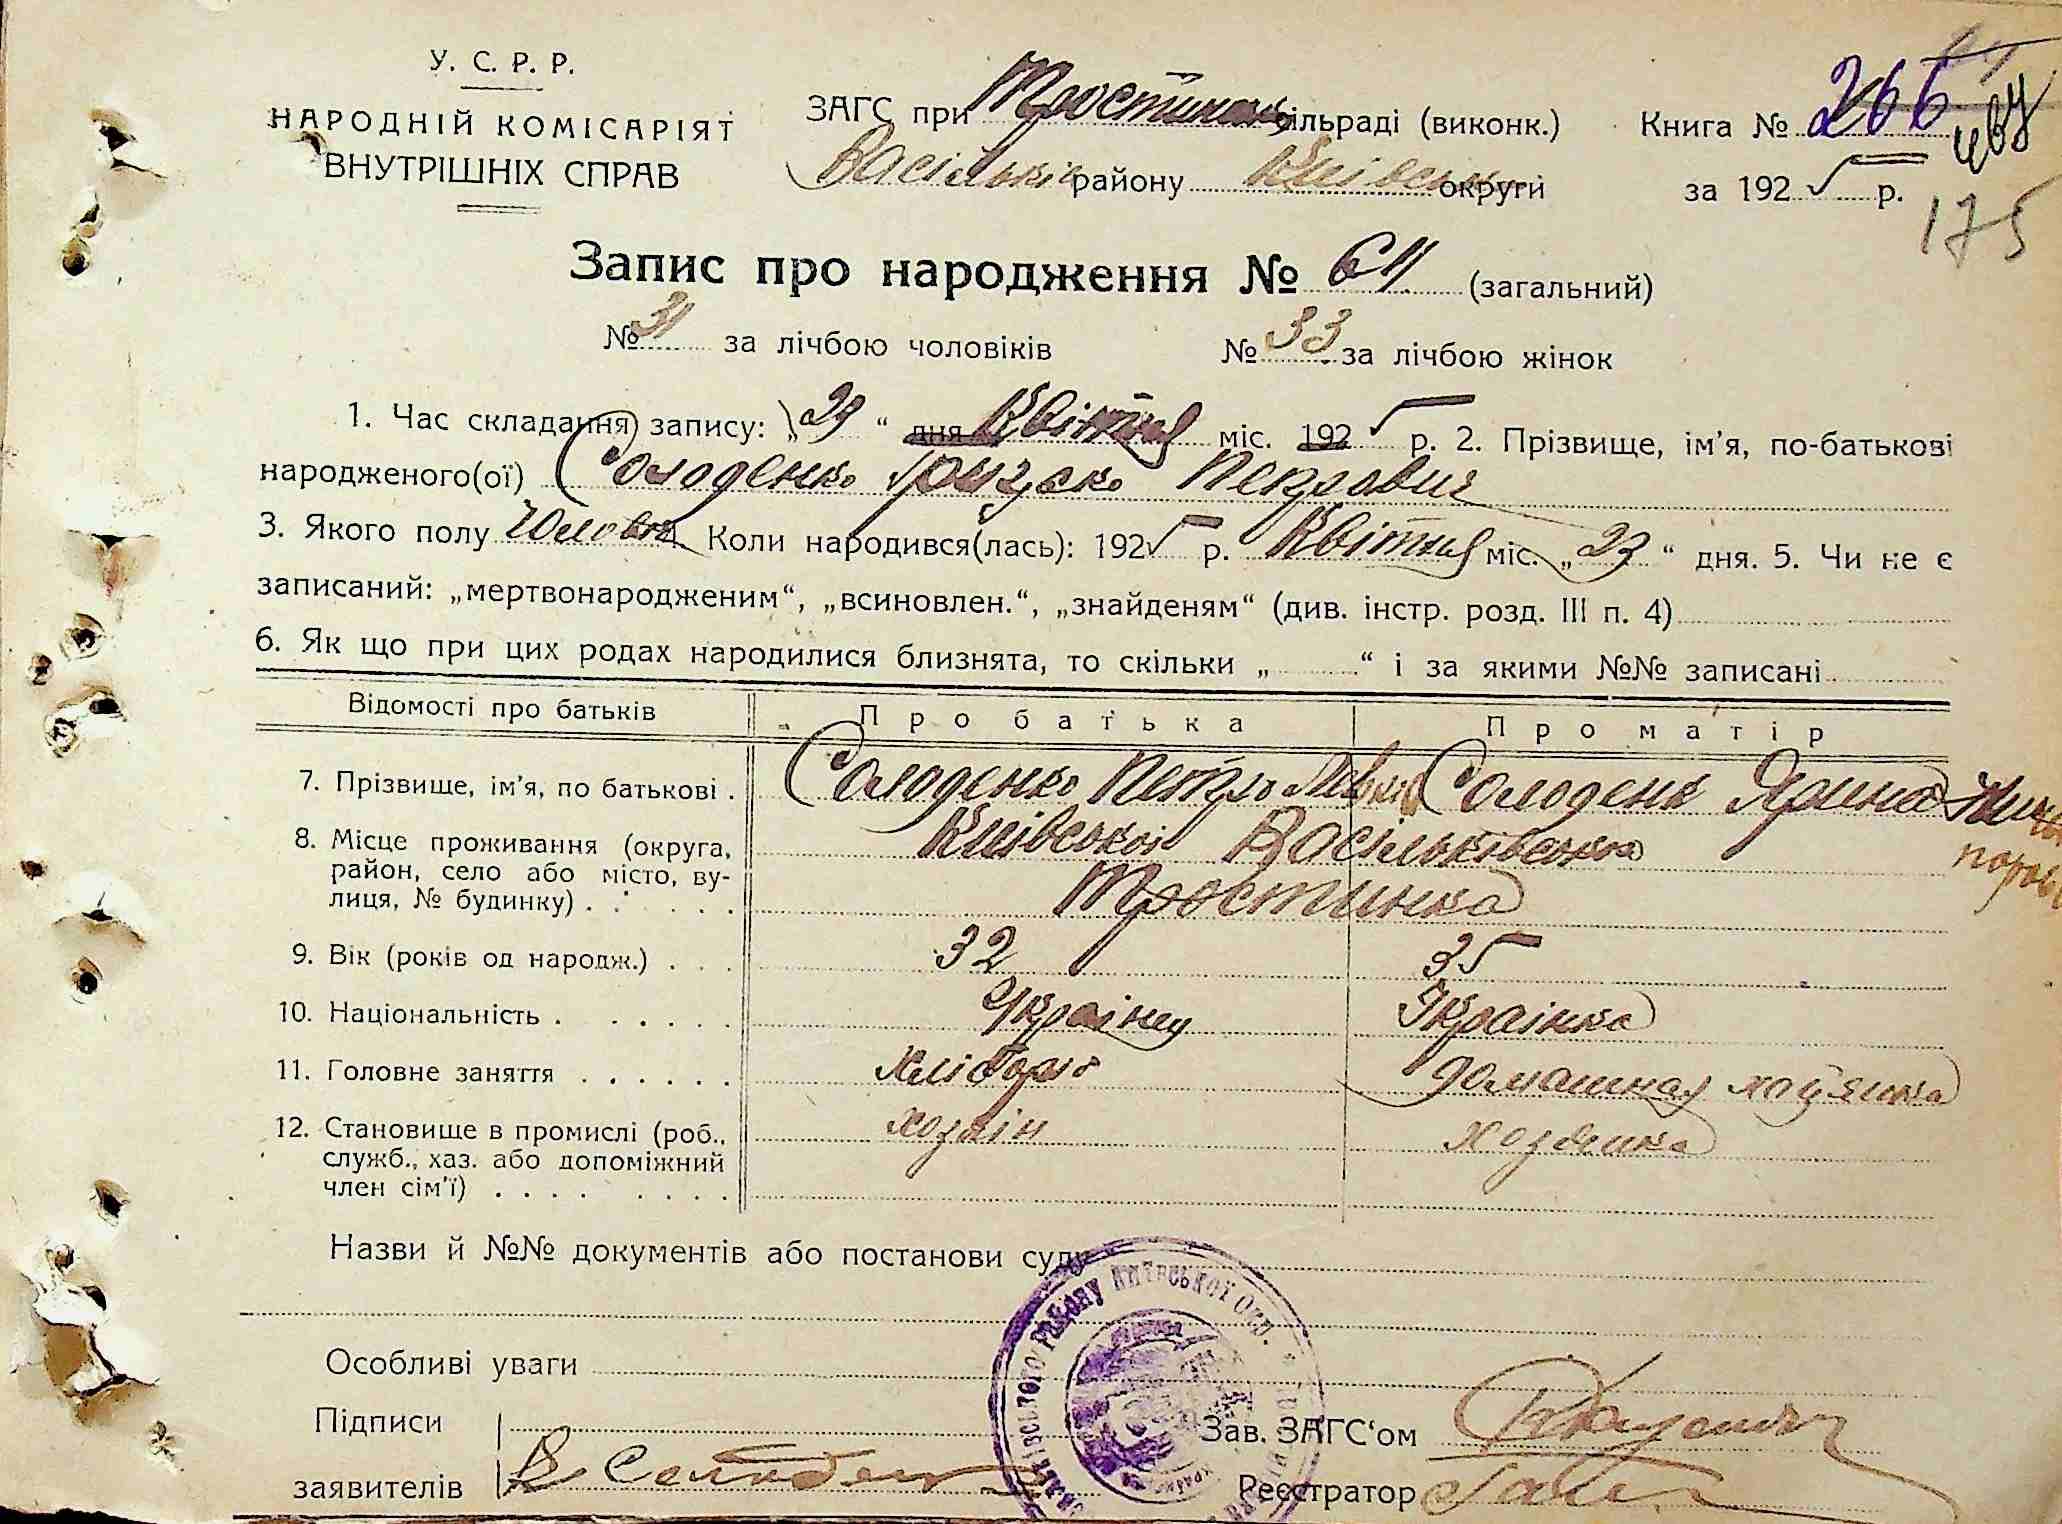 У. С. Р. Р.
НАРОДНІЙ КОМІСАРІЯТ
ВНУТРІШНІХ СПРАВ
ЗАГС при Тростинськ сільраді (виконк.)
Васільків району Київськ округи
Книга № 266
за 1925 р.
175
Запис про народження № 64 (загальний)
№ 31 за лічбою чоловіків № 33 за лічбою жінок
1. Час складання запису: „29“ дня Квітня міс. 1925 р. 2. Прізвище, ім’я, по-батькові
народженого(ої) Солоденко Грицско Петрович
3. Якого полу Чоловіч Коли народився(лась): 1925 р. Квітня міс. „23“ дня. 5. Чи не є
записаний: „мертвонародженим“, „всиновлен.“, „знайденям“ (див. інстр. розд. III п. 4)
6. Як що при цих родах народилися близнята, то скільки „ “ і за якими №№ записані
Відомості про батьків Про батька Про матір
7. Прізвище, ім’я, по батькові . Солоденко Петро Солоденк Ярина
8. Місце проживання (округа, Київської Васільківська
район, село або місто, ву-
лиця, № будинку) . Тростинка
9. Вік (років од народж.) . . . 32 35
10. Національність . . . . . . Українец Українка
11. Головне заняття . . . . . . хлібороб домашная хазяйка
12. Становище в промислі (роб., хозаін хозяйка
служб., хаз. або допоміжний
член сім’ї) . . . . . . . .
Назви й №№ документів або постанови суду
Особливі уваги
Підписи
заявителів В Солоден
Зав. ЗАГС‘ом
Реєстратор